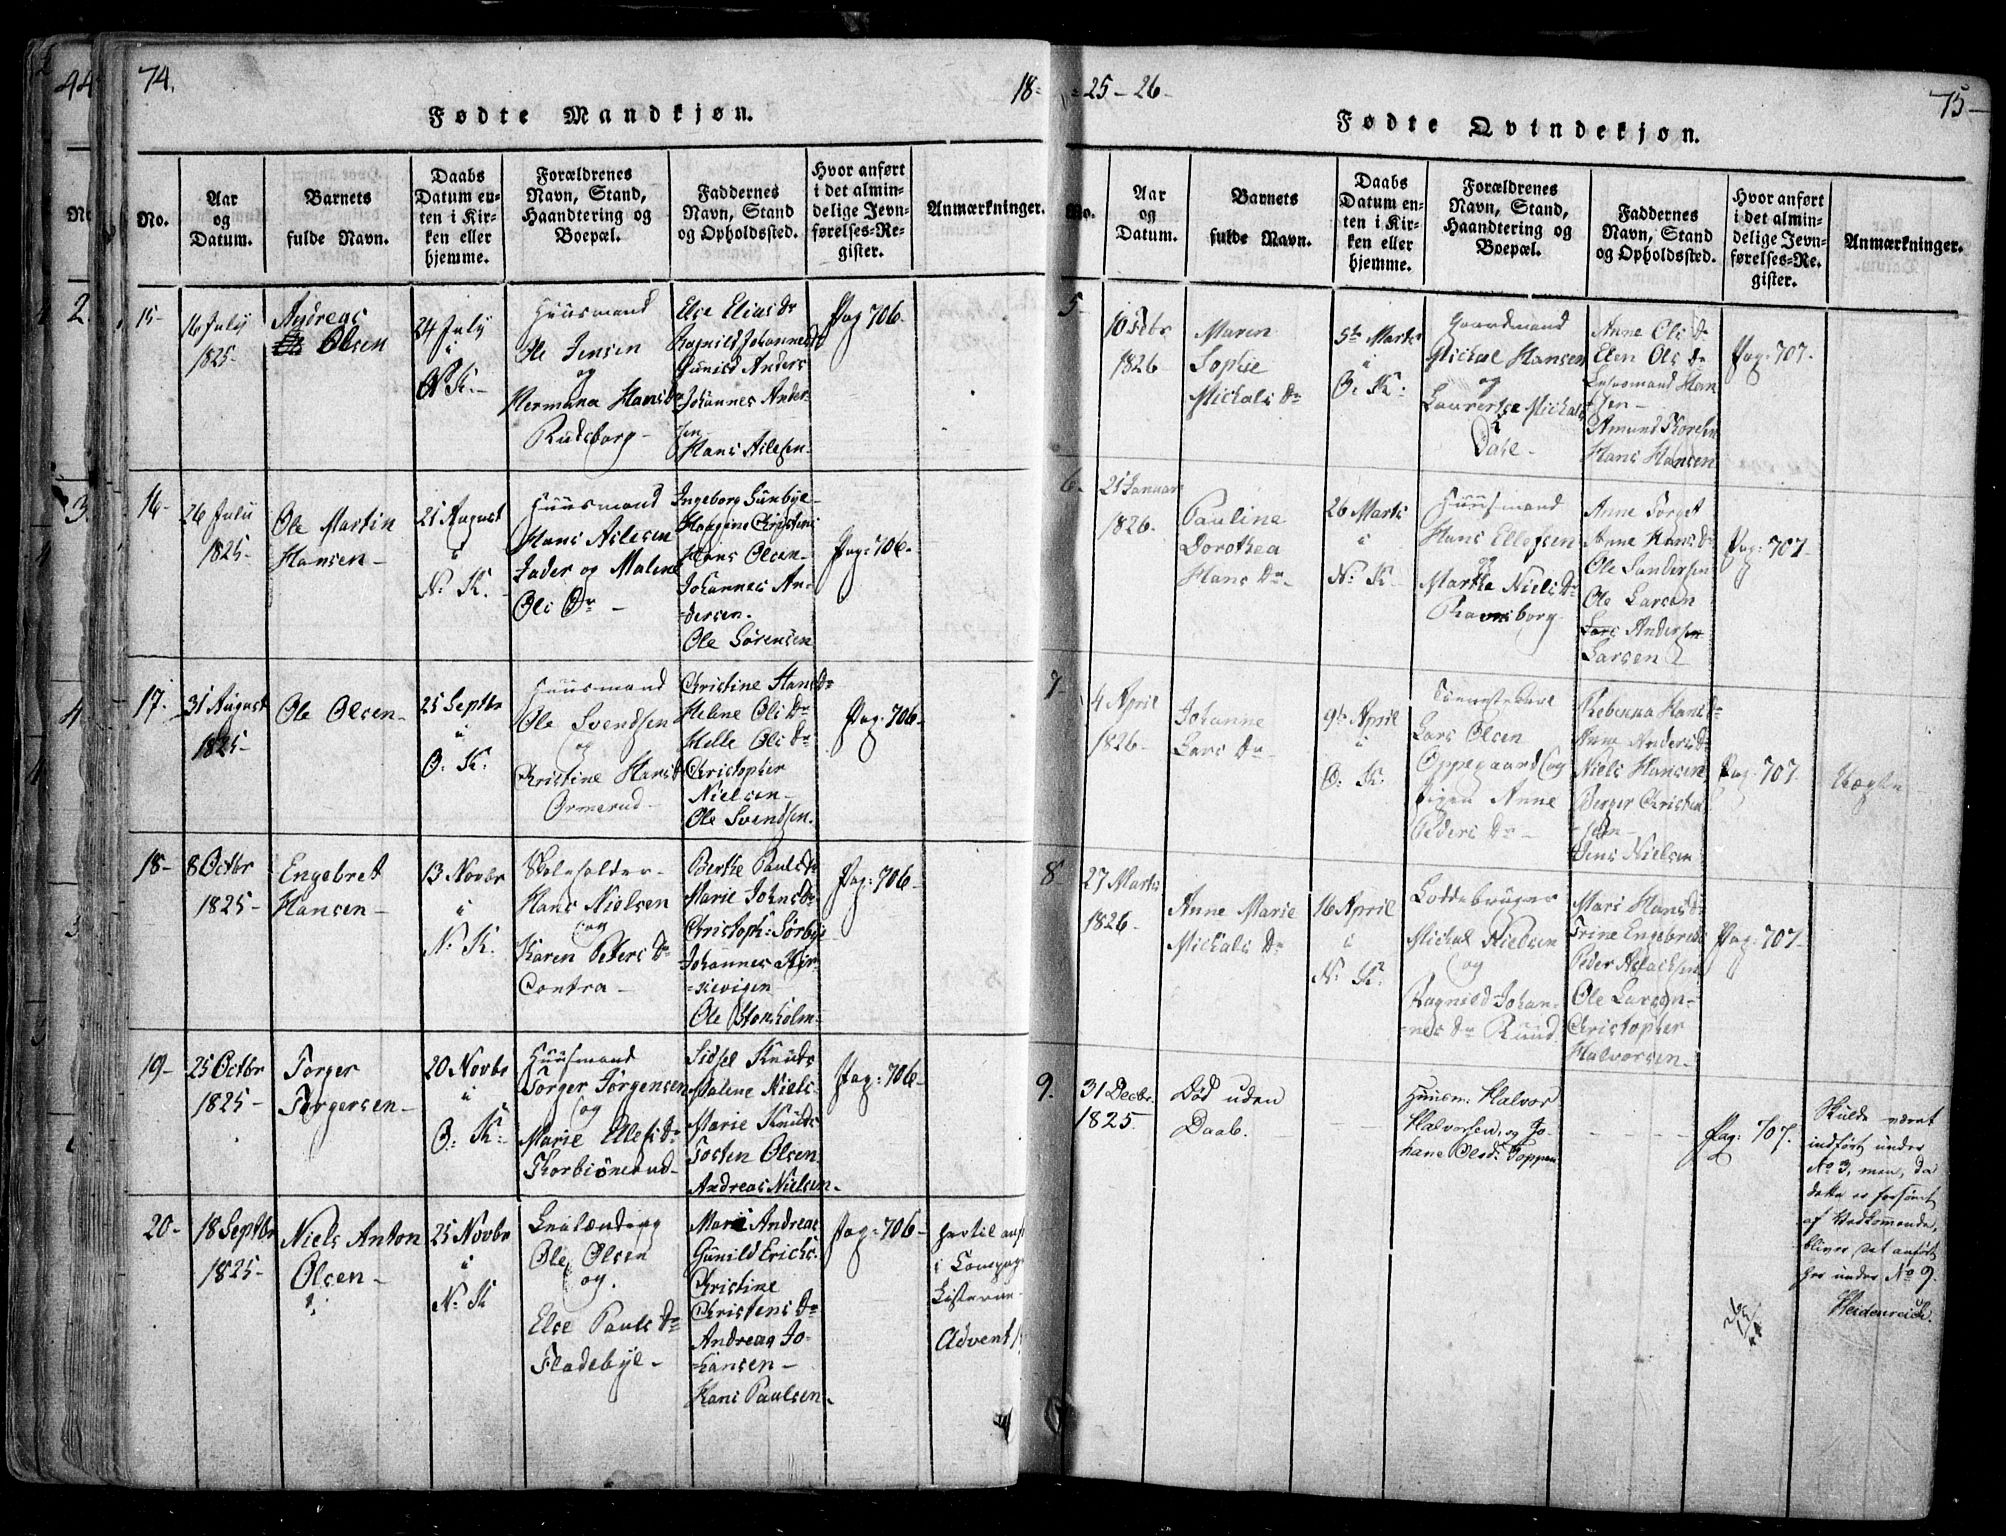 74.
18-
Fødte Mandkjøn.
No.
Aar
og
Datum.
Barnets
fulde Navn.
Daabs
Datum en-
ten i Kir-
ken eller
hjemme.
Forældrenes
Navn, Stand,
Haandtering og
Boepæl.
Faddernes
Navn, Stand
og Opholdssted.
Hvor anført
i det almin-
delige Jevn-
førelses-Re-
gister.
Anmærkninger.
15-
16 July
1825-
Andreas
Olsen
24 July
i
O. K.-
Huusmand
Ole Jensen
og
Hermana Hans Dr
Rudsborg-
Else Elias Dr
Ragnild Johannes Dr
Gunild Anders
Johannes Ander-
sen-
Hans Aslesen-
Pag 706-
16-
26 July
1825-
Ole Martin
Hansen-
21 August
i
N. K.
Huusmand
Hans Aslesen
Jader og Malene
Ols Dr-
Ingeborg Sunbye-
Haagine Christens
Hans Olsen-
Johannes An-
dersen.
Ole Sörensen
Pag: 706-
17-
31 August
1825-
Ole Olsen-
25 Septbr
i
O. K.
Huusmand
Ole Svendsen
og
Christine Hans Dr
Ormerud-
Christine Hans Dr
Helene Ols Dr
Helle Ols Dr
Christopher
Nielsen-
Ole Svendsen.
Pag: 706-
18-
8 Octbr
1825-
Engebret
Hansen-
13 Novbr
i
N. K.
Skoleholder-
Hans Nielsen
og
Karen Peters Dr
Contra-
Berthe Pauls Dr
Marie Johns Dr
Christoph: Sörbye
Johannes Kir-
-kevigen
Ole Stensholm-
Pag: 706-
19-
25 Octbr
1825-
Torger
Torgersen-
20 Novbr
i
O: K:
Huusmand
Torger Törgensen
og
Marie Ellefs Dr
Thorbiönerud-
Sidsel Knuds
Malene Niels-
Marie Knuds
Tosten Olsen.
Andreas Nielsen-
Pag: 706-
20-
18 Septbr
1825-
Niels Anton
Olsen-
25 Novbr
i
N. K
Ole Olsen
og.
Else Pauls Dr
Fladebye-
Mari Andreas
Gunild Erichs.
Christine
Christens Dr
Andreas Jo-
hansen-
Hans Paulsen-
Pag: 706-
i
Advent
-25-26-
75-
Fødte Qvindekjøn.
No.
Aar
og
Datum.
Barnets
fulde Navn.
Daabs
Datum en-
ten i Kir-
ken eller
hjemme.
Forældrenes
Navn, Stand,
Haandtering og
Boepæl.
Faddernes
Navn, Stand
og Opholdssted.
Hvor anført
i det almin-
delige Jevn-
førelses-Re-
gister.
Anmærkninger.
5-
10 Febr
1826-
Maren
Sophie
Michels Dr
5te Marts
i
O: K:
Gaardmand
Michel Hansen
og
Laurentse Michels
Dahl-
Anne Ols Dr
Elen Ols Dr
Han
-sen-
Amund Thoresen
Hans Hansen
Pag: 707-
6-
21 Januar
1826-
Pauline
Dorothea
Hans Dr-
26 Marts
i
N: K-
Huusmand
Hans Ellefsen
og
Marthe Niels Dr
Ravnsborg
Anne Torget
Anne Hans Dr
Ole Sandersen
Ole Larsen
Lars Andersen
Larsen
Pag: 707-
7-
4 April
1826-
Johanne
Lars Dr-
9de April
i
O. K.
Tienestekarl
Lars Olsen
Oppegaard og
Pigen Anne
Peders Dr-
Rebenna Hans Dr
Anne Anders Dr
Niels Hansen
Berger Christen
-sen-
Jens Nielsen
Pag: 707-
Uægte
8-
27 Marts
1826-
Anne Marie
Michels Dr
16 April
i
N. K.
Loddebruger
Michel Nielsen
og
Ragnild Johan-
nes Dr Ruud
Mari Hans Dr
Trine Engebrets
Peder Aslachsen
Ole Larsen-
Christopher
Halvorsen-
Pag: 707-
9.
31 Decbr.
1825.
Død uden
Daab.
Huusm: Halvor
Halvorsen, og Jo-
hane Olsdr Toppen
Pag: 707.
Skulde været
indført under
No 3, men, da
dette er forsömt
af Vedkomende,
bliver det anført
her under No 9.
Heidenreich.